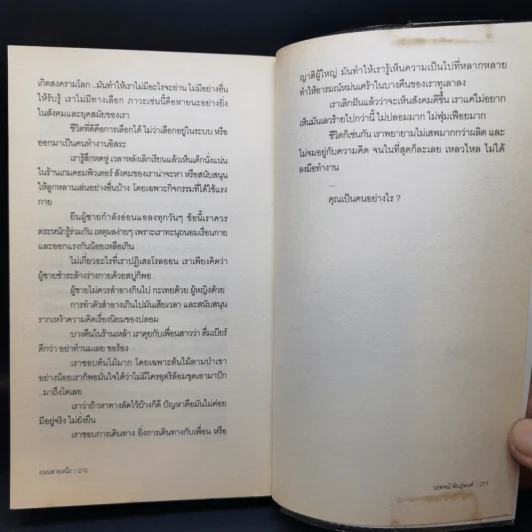 เกิดสงครามโลก ..มันทำให้เราไม่มีอะไรจะอ่าน ไม่มีอย่างอื่น
ให้รับรู้ เราไม่มีทางเลือก ภาวะเช่นนี้คือหายนะอย่างยิ่ง
ในสังคมและยุคสมัยของเรา
ชีวิตที่ดีคือการเลือกได้ ไม่ว่าเลือกอยู่ในระบบ หรือ
ออกมาเป็นคนทำงานอิสระ
เรารู้สึกหดหู่ เวลาหลังเลิกเรียนแล้วเห็นเด็กนั่งแน่น
ในร้านเกมคอมพิวเตอร์ สังคมของเราน่าจะหา หรือสนับสนุน
ให้ลูกหลานเล่นอย่างอื่นบ้าง โดยเฉพาะกิจกรรมที่ได้ใช้แรง
กาย
ยืนผู้ชายกำลังอ่อนแอลงทุกวันๆ ข้อนี้เราควร
ตระหนักรู้ร่วมกัน เหตุผลง่ายๆ เพราะเราทะนุถนอมเรือนกาย
และออกแรงกันน้อยเหลือเกิน
ไม่เกี่ยวอะไรที่เราปฏิเสธโรลออน เราเพียงคิดว่า
ผู้ชายชำระล้างร่างกายด้วยสบู่ก็พอ
ผู้ชายไม่ควรสำอางเกินไป กะเทยด้วย ผู้หญิงด้วย
การทำตัวสำอางเกินไปมันเสียเวลา และสนับสนุน
รากเหง้าความคิดเรื่องนิยมของปลอม
บางคืนในร้านเหล้า เราคุยกับเพื่อนสาวว่า ดื่มเบียร์
ดีกว่า อย่าทำนมเลย ขอร้อง
เราชอบต้นไม้มาก โดยเฉพาะต้นไม้ตามป่าเขา
อย่างน้อยเราก็พอมั่นใจได้ว่าไม่มีใครอุตริล้อมขุดเอามาปัก
..มาถึงโตเลย
เราว่าถ้าหาทางลัดไว้บ้างก็ดี ปัญหาคือมันไม่ค่อย
มีอยู่จริง ไม่ยั่งยืน
เราชอบการเดินทาง ยิ่งการเดินทางกับเพื่อน หรือ
ถนนสายหนึ่ง : 270
ญาติผู้ใหญ่ มันทำให้เรารู้เห็นความเป็นไปที่หลากหลาย
ทำให้อารมณ์หม่นเศร้าในบางคืนของเราทุเลาลง
เราเลิกฝันแล้วว่าจะเห็นสังคมดีขึ้น เราแค่ไม่อยาก
เห็นมันเลวร้ายไปกว่านี้ ไม่ปลอมมาก ไม่ฟุ่มเฟือยมาก
ชีวิตก็เช่นกัน เราพยายามไม่เสพมากกว่าผลิต และ
ไม่จมอยู่กับความคิด จนในที่สุดก็ละเลย เหลวไหล ไม่ได้
ลงมือทำงาน
...
คุณเป็นคนอย่างไร ?
วรพจน์ พันธุ์พงศ์ : 271